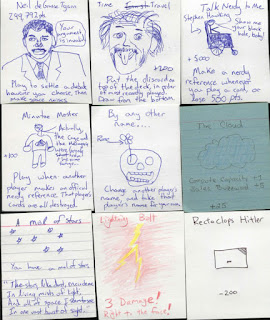 Neil deGrasse Tyson
299,792 pts
Your
argument
is invalid!
Play to settle a debate
however you choose. Then
make space noises.
Time Travel
+1200
Put the discard on
top of the deck, in order
of most recently played.
Draw from the bottom.
Talk Nerdy to Me
Stephen Hawking
Show me
your black
hole, baby!
+500
Make a
nerdy reference whenever
you play a card, or
lose 500 pts.
Minutee Mester
Actually,
+100
Play when another
player makes an official
nerdy reference. That player's
cards are all destroyed.
By any other
name...
Rose
Change another player's
name, and take that
player's name for your own.
The Cloud
Compute Capacity +1
Sales Buzzword +5
+25
A mist of stars
You have a mist of stars
"The stars, like dust, encircle me
In living mists of light,
And all of space I
In one vast burst of
Lightning Bolt
3 Damage!
Right to the face!
Rectaclops Hitler
-200